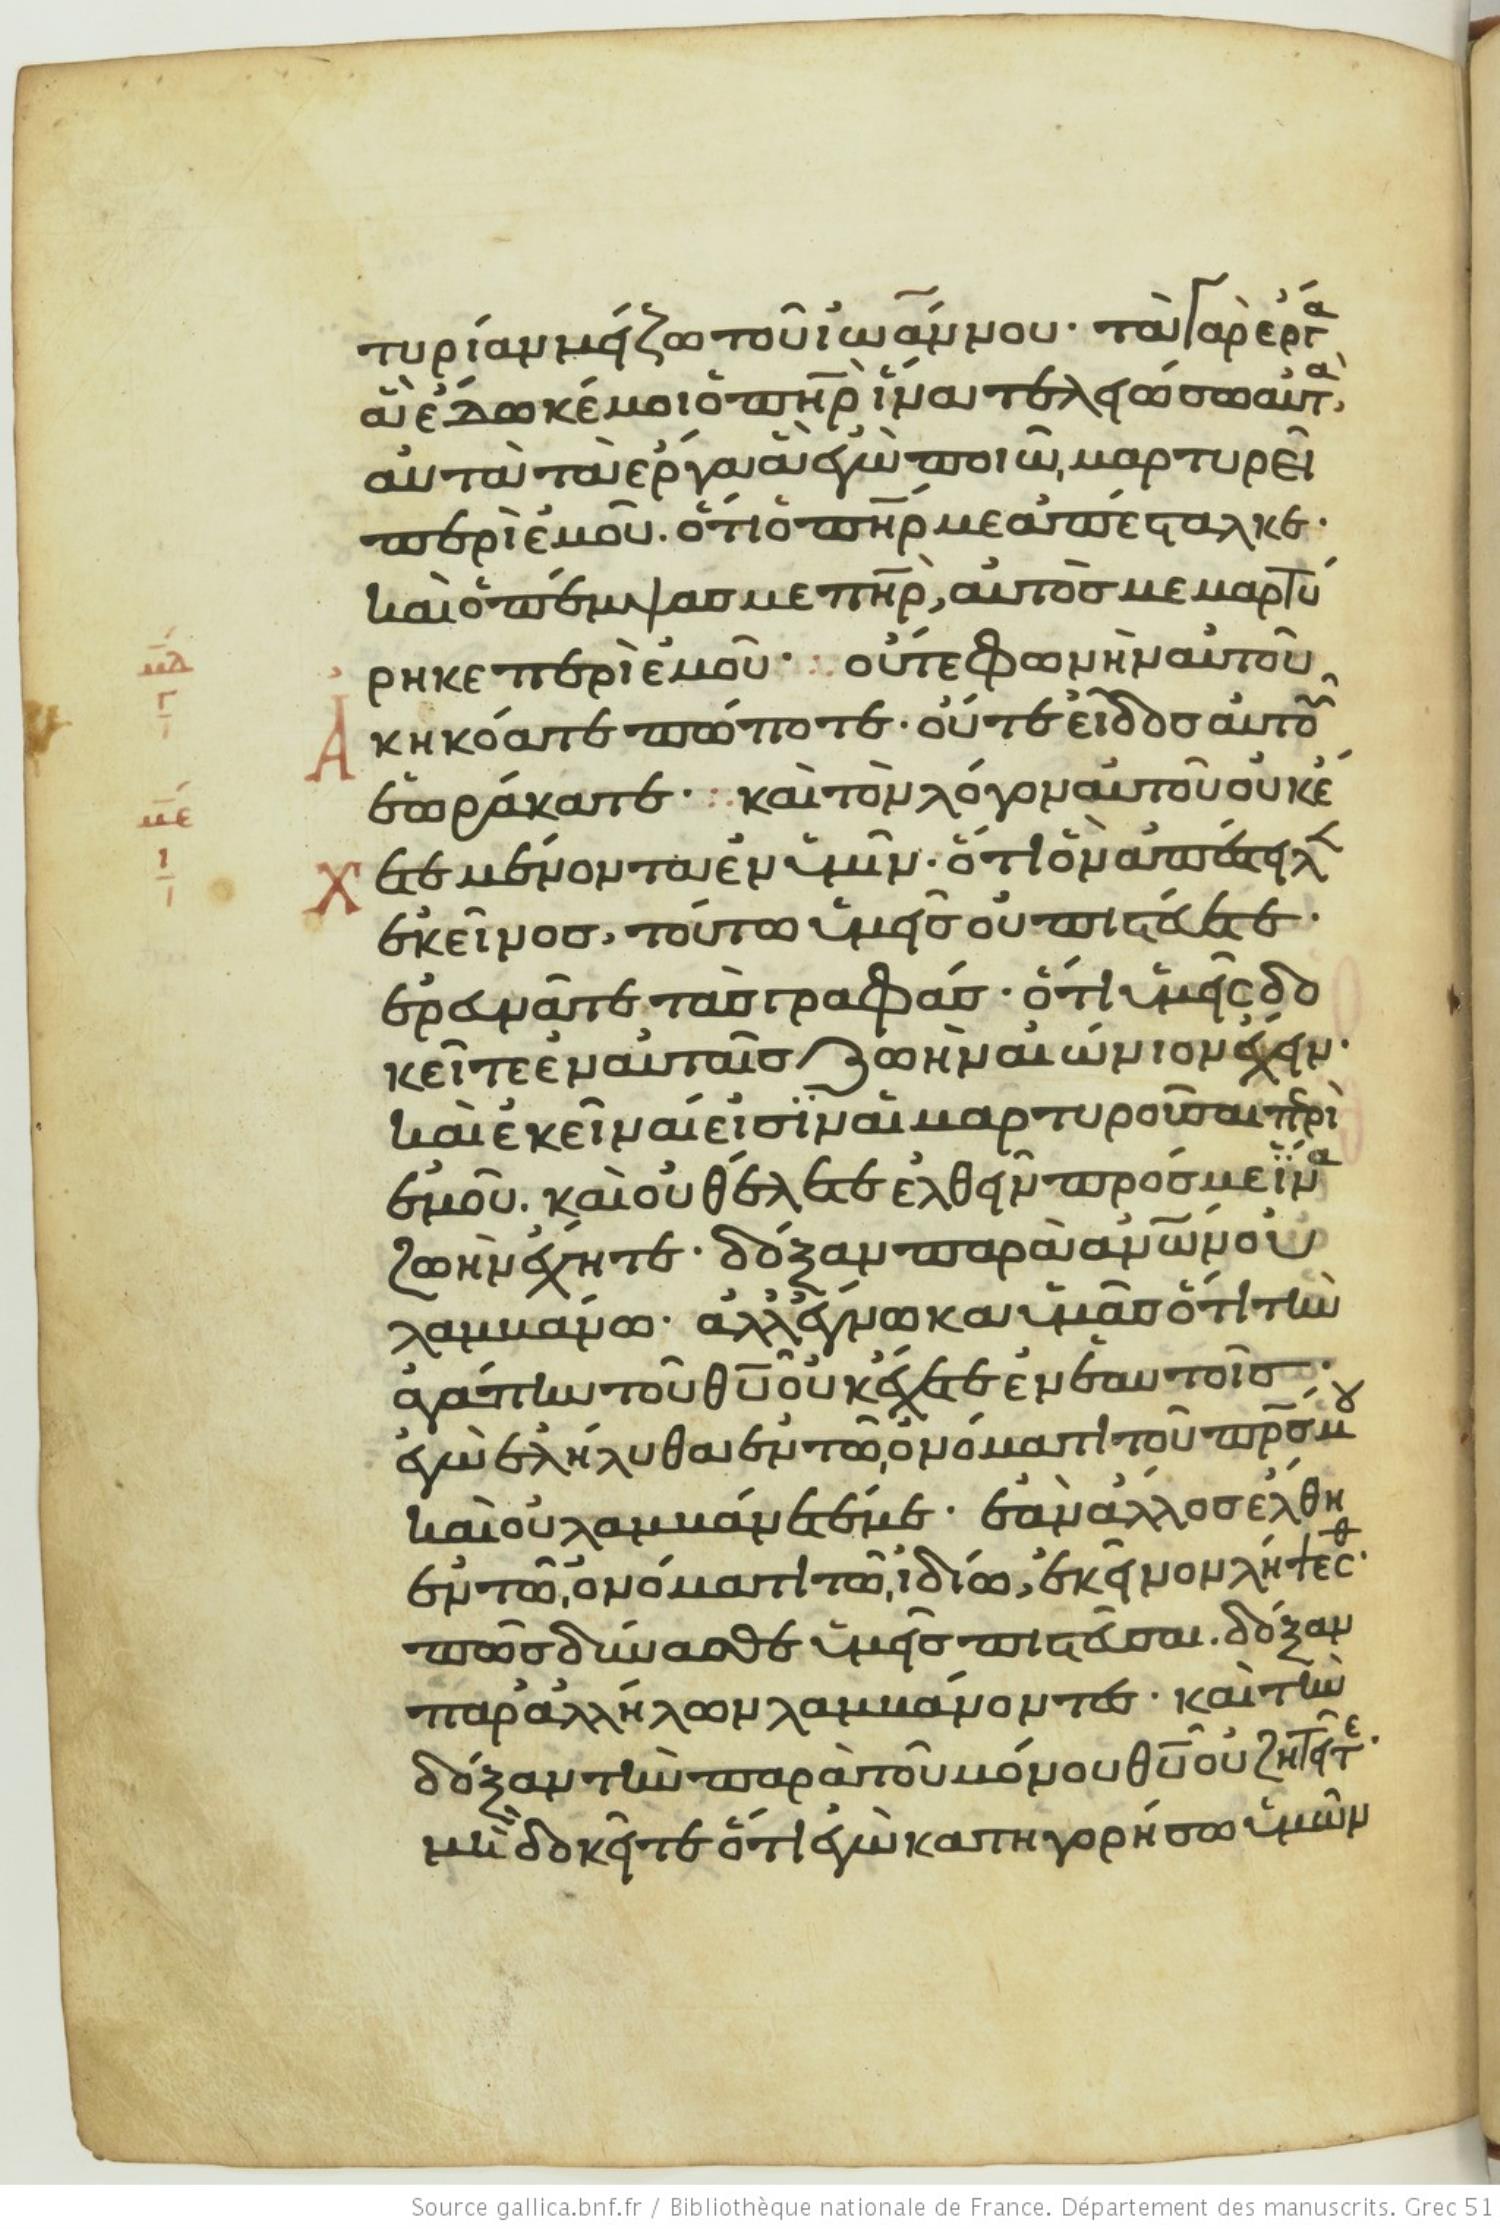 τυρίαν μείζω τοῦ ἰωάννου· τὰ γὰρ ἔργα
ἃ ἔδωκέ μοι ὁ πη̅ρ ἵνα τελειώσω αὐτὰ,
αὐτὰ τὰ ἔργα ἃ ἐγὼ ποιῶ, μαρτυρεῖ
περὶ ἐμοῦ. ὅτι ὁ πη̅ρ με ἀπέσταλκε·
καὶ ὁ πέμψασ με πη̅ρ, αὐτὸσ μεμαρτύ
μδ
ρηκε περὶ ἐμοῦ· οὔτε φωνὴν αὐτοῦ
γ
Ἀκηκόατε πώποτε· οὔτε εἶδοσ αὐτοῦ
ἑωράκατε· καὶ τὸν λόγον αὐτοῦ οὐκ ἔ
με
ι
Χετε μένοντα ἐν ὑμῖν· ὅτι ὃν ἀπέστειλ
ἐκεῖνοσ, τούτω ὑμεῖσ οὐ πιστεύετε·
ἐρευνᾶτε τὰσ γραφάσ· ὅτι ὑμεῖς δο
κεῖτε ἐν αὐταῖσ ζωὴν αἰώνιον ἔχειν·
καὶ ἐκεῖναί εἰσϊν αἱ μαρτυροῦσαι περὶ
ἐμοῦ. καὶ οὐ θέλετε ἐλθεῖν πρόσ με ἵνα
ζωὴν ἔχητε· δόξαν παρὰ αν̅ω̅ν οὐ
λαμβάνω· ἀλλ' ἔγνωκα ὑμᾶσ ὅτι τὴν
ἀγάπην τοῦ θυ̅ οὐκ ἔχετε ἐν ἑαυτοῖσ·
ἐγὼ ἐλήλυθα ἐν τῶ, ὀνόματι τοῦ πρ̅σ μου
καὶ οὐ λαμβάνετέ με· ἐὰν ἄλλοσ ἔλθη
ἐν τῶ, ὀνόματι τῶ, ἰδίω, ἐκεῖνον λήψεσθ·
πῶσ δύνασθε ὑμεῖσ πιστεῦσαι. δόξαν
παρ' ἀλλήλων λαμβάνοντεσ· καὶ τὴν
δόξαν τὴν παρὰ τοῦ μόνου θυ̅ οὐ ζητεῖτε·
μὴ δοκεῖτε ὅτι ἐγὼ κατηγορήσω ὑμῶν
Source gallica.bnf.fr / Bibliothèque nationale de France. Département des manuscrits. Grec 51